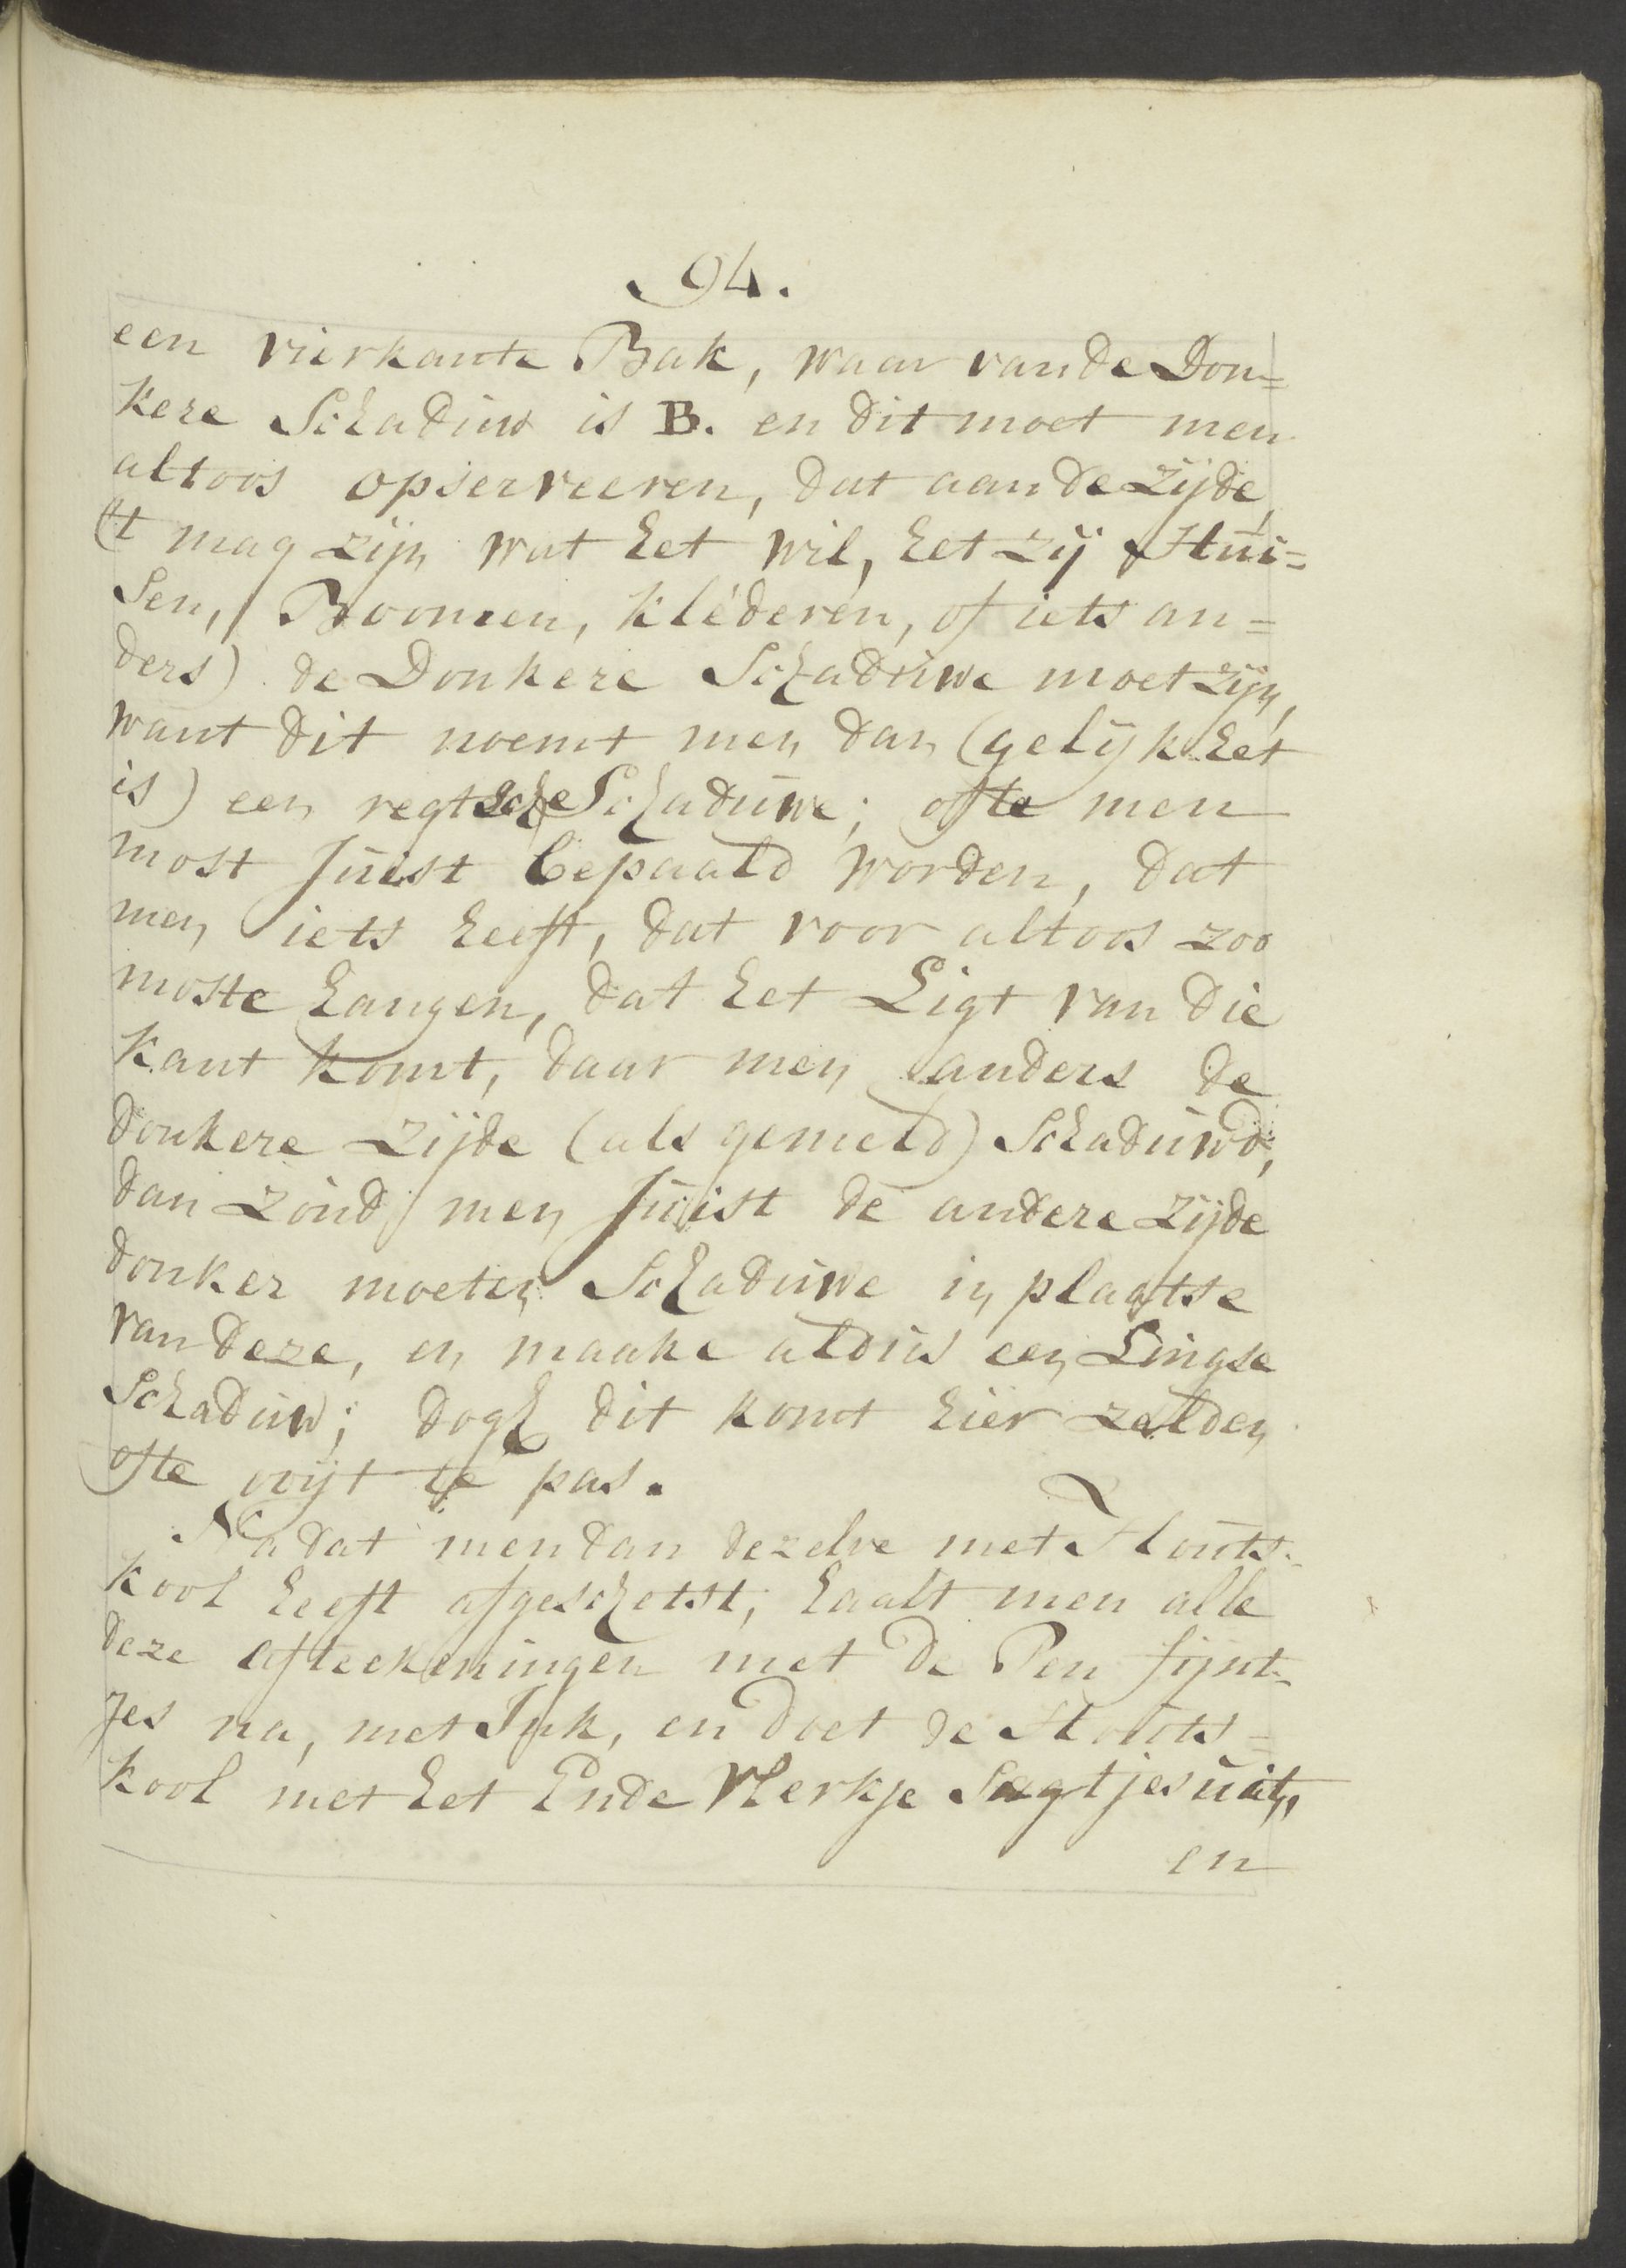 94.
een vierkante Bak, waar van de Don=
kere Schaduw is B. en dit moet men
altoos opserveeren, dat aan de zijde,
('t mag zijn wat het wil, het zij Hui=
sen, Boomen, klederen, of iets an=
ders) de Donkere Schaduwe moet zijn,
want dit noemt men dan (gelijk het
is) een regtsche Schaduwe; ofte men
most Juist bepaald worden, dat
men iets heeft, dat voor altoos zoo
moste hangen, dat het Ligt van die
kant komt, daar men anders de
donkere zijde (als gemeld) Schaduwd,
dan zoud men Juist de andere zijde
donker moeten Schaduwe in plaatse
van deze, en maake aldus een Lingse
Schaduw; dogh dit komt hier zelden
ofte ooijt te pas.
Na dat men dan dezelve met Houts-
kool heeft afgeschetst, haalt men alle
deze afteekeningen met de Pen fijnt-
jes na, met Ink, en doet de Houts=
kool met het Ende Vlerkje Sagtjes uit,
en